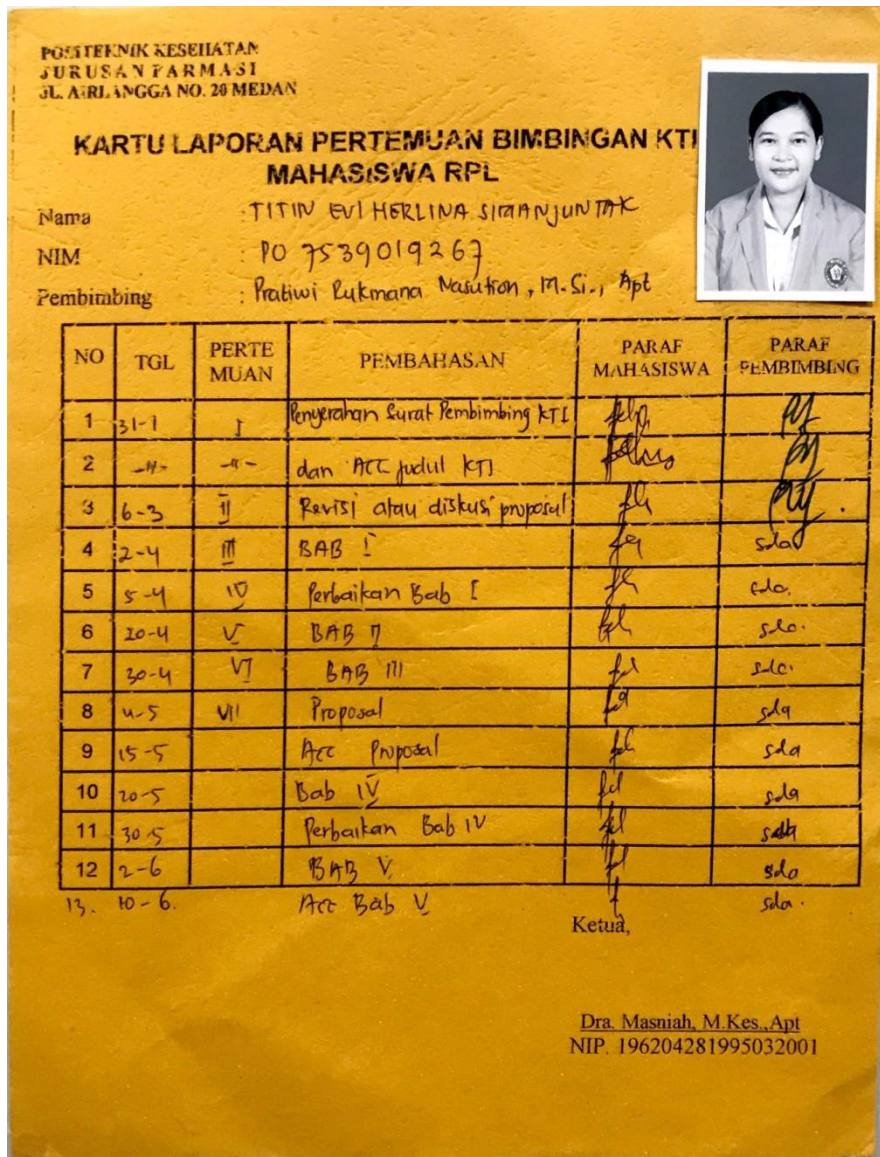 POLITEKNIK KESEHATAN
JURUSAN FARMASI
JL. AIRLANGGA NO. 20 MEDAN
KARTU LAPORAN PERTEMUAN BIMBINGAN KTI
MAHASISWA RPL
Nama : TITIN EVI HERLINA SIMANJUNTAK
NIM : PO 7539019267
Pembimbing : Pratiwi Rukmana Nasution, M.Si., Apt
NO TGL PERTE MUAN PEMBAHASAN PARAF MAHASISWA PARAF PEMBIMBING
1 31-1 I Penyerahan Surat Pembimbing KTI
2 -11- -11- dan ACC judul KTI
3 6-3 II Revisi atau diskusi proposal
4 2-4 III BAB I sda
5 5-4 IV Perbaikan Bab I sda.
6 20-4 V BAB II sda.
7 30-4 VI BAB III sda.
8 4-5 VII Proposal sda
9 15-5 Acc Proposal sda
10 20-5 Bab IV sda
11 30-5 Perbaikan Bab IV sda
12 2-6 BAB V sda
13. 10-6. Acc Bab V sda.
Ketua,
Dra. Masniah, M.Kes.,Apt
NIP. 196204281995032001